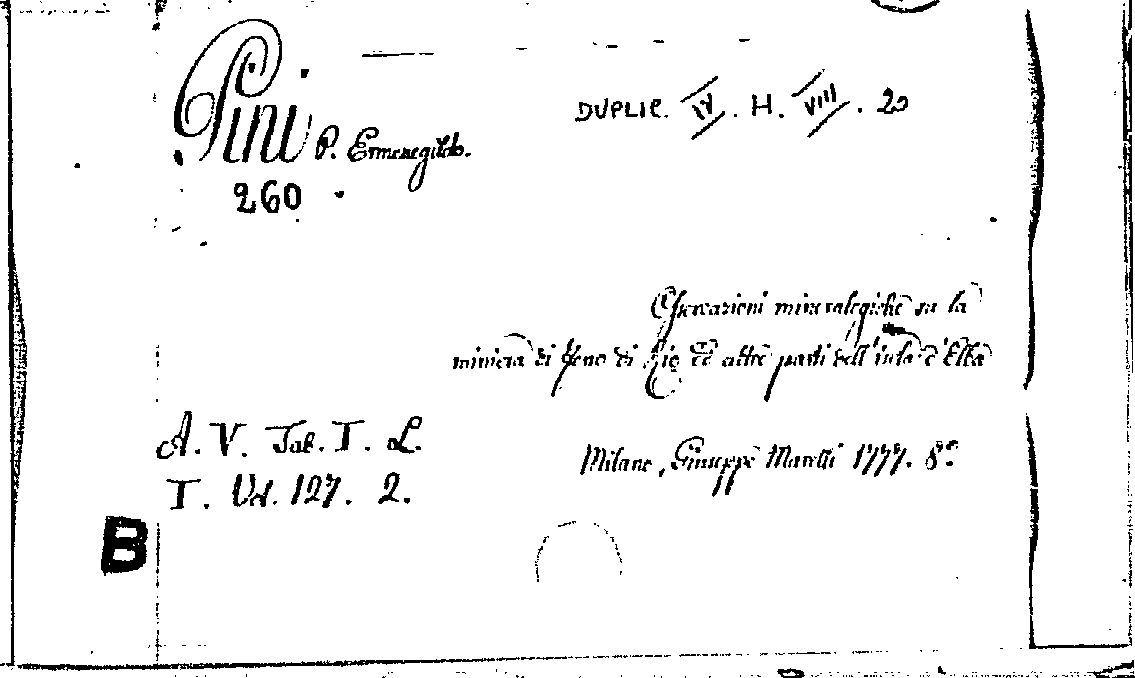 Pini P. Ermenegildo.
260
DUPLIC. IV. H. VIII. 20
Osservazioni mineralogiche su la
miniera di ferro di Rio ed altre parti dell'isola d'Elba
Milano, Giuseppe Marelli 1777. 8°.
A. V. Tab. I. L.
I. Vol. 127. 2.
B